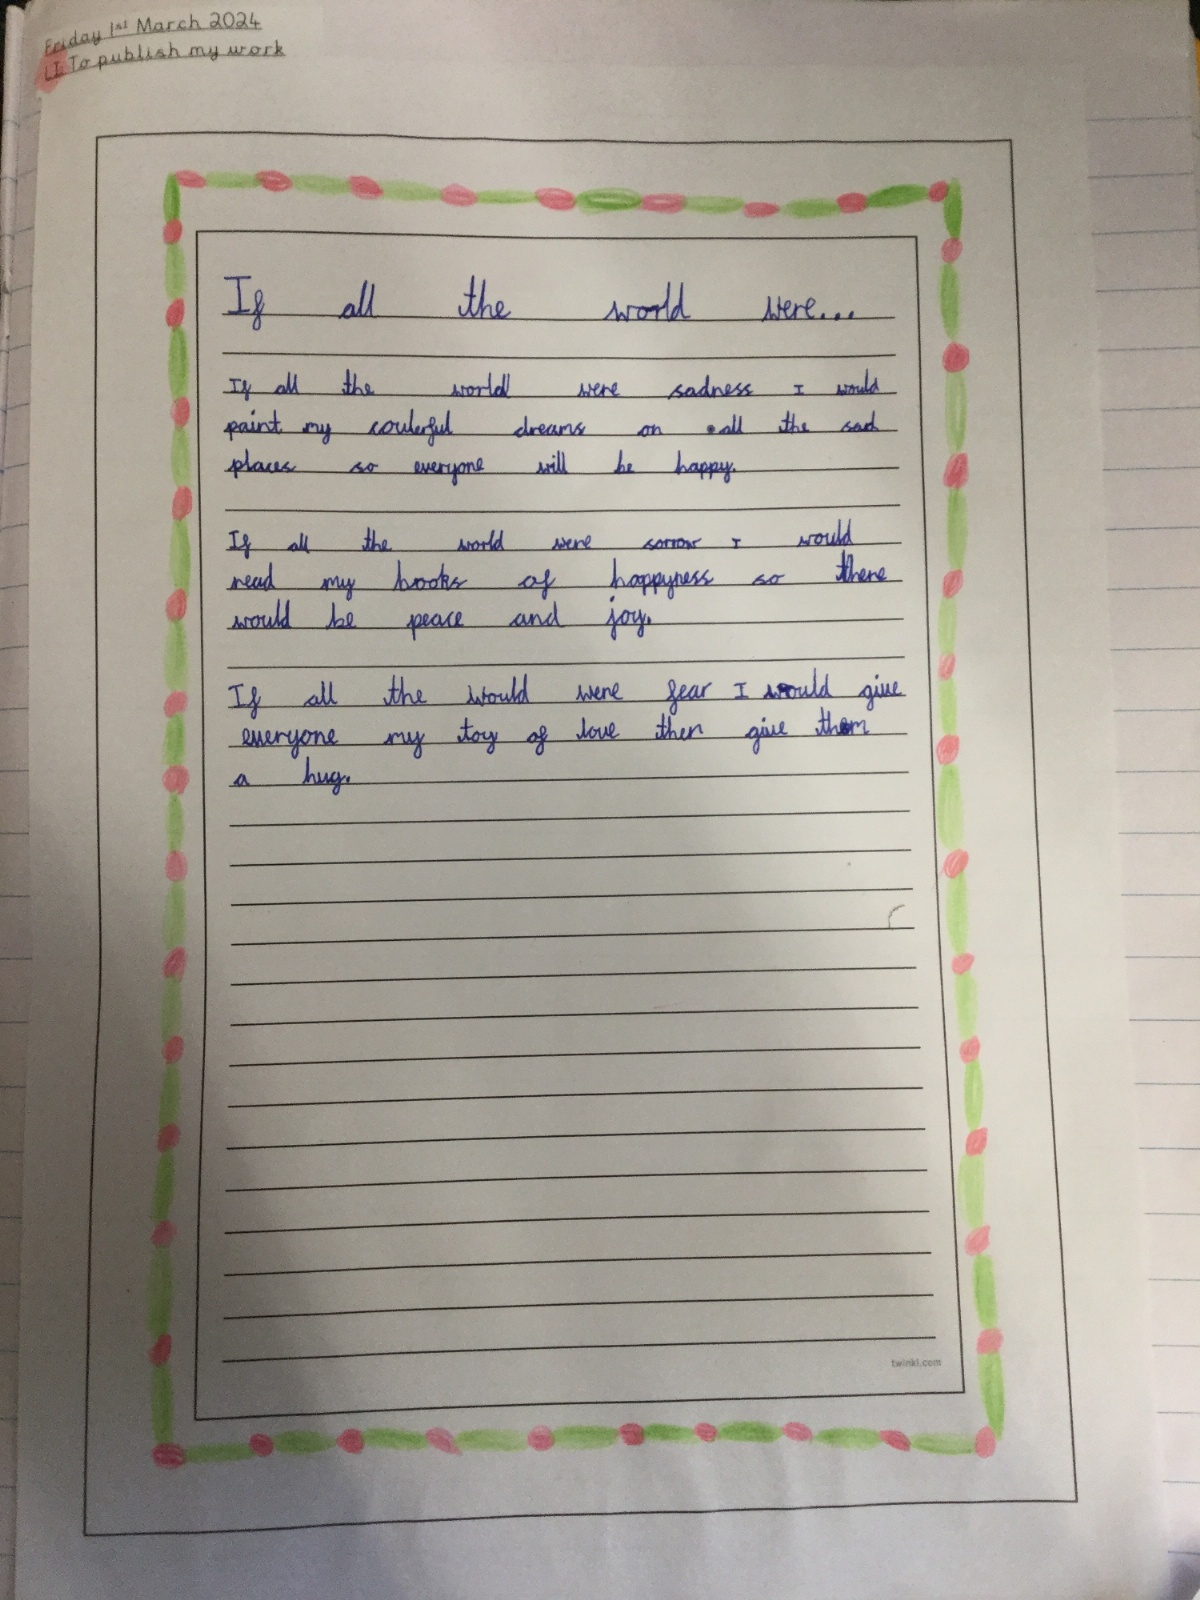 Friday 1st March 2024
LI To publish my work
If all the world were...
If all the world were sadness I would
paint my coulerful dreams on all the sad
places so everyone will be happy.
If all the world were sorrow I would
read my books of happyness so there
would be peace and joy.
If all the would were fear I would give
everyone my toy of love then give them
a hug.
twinkl.com